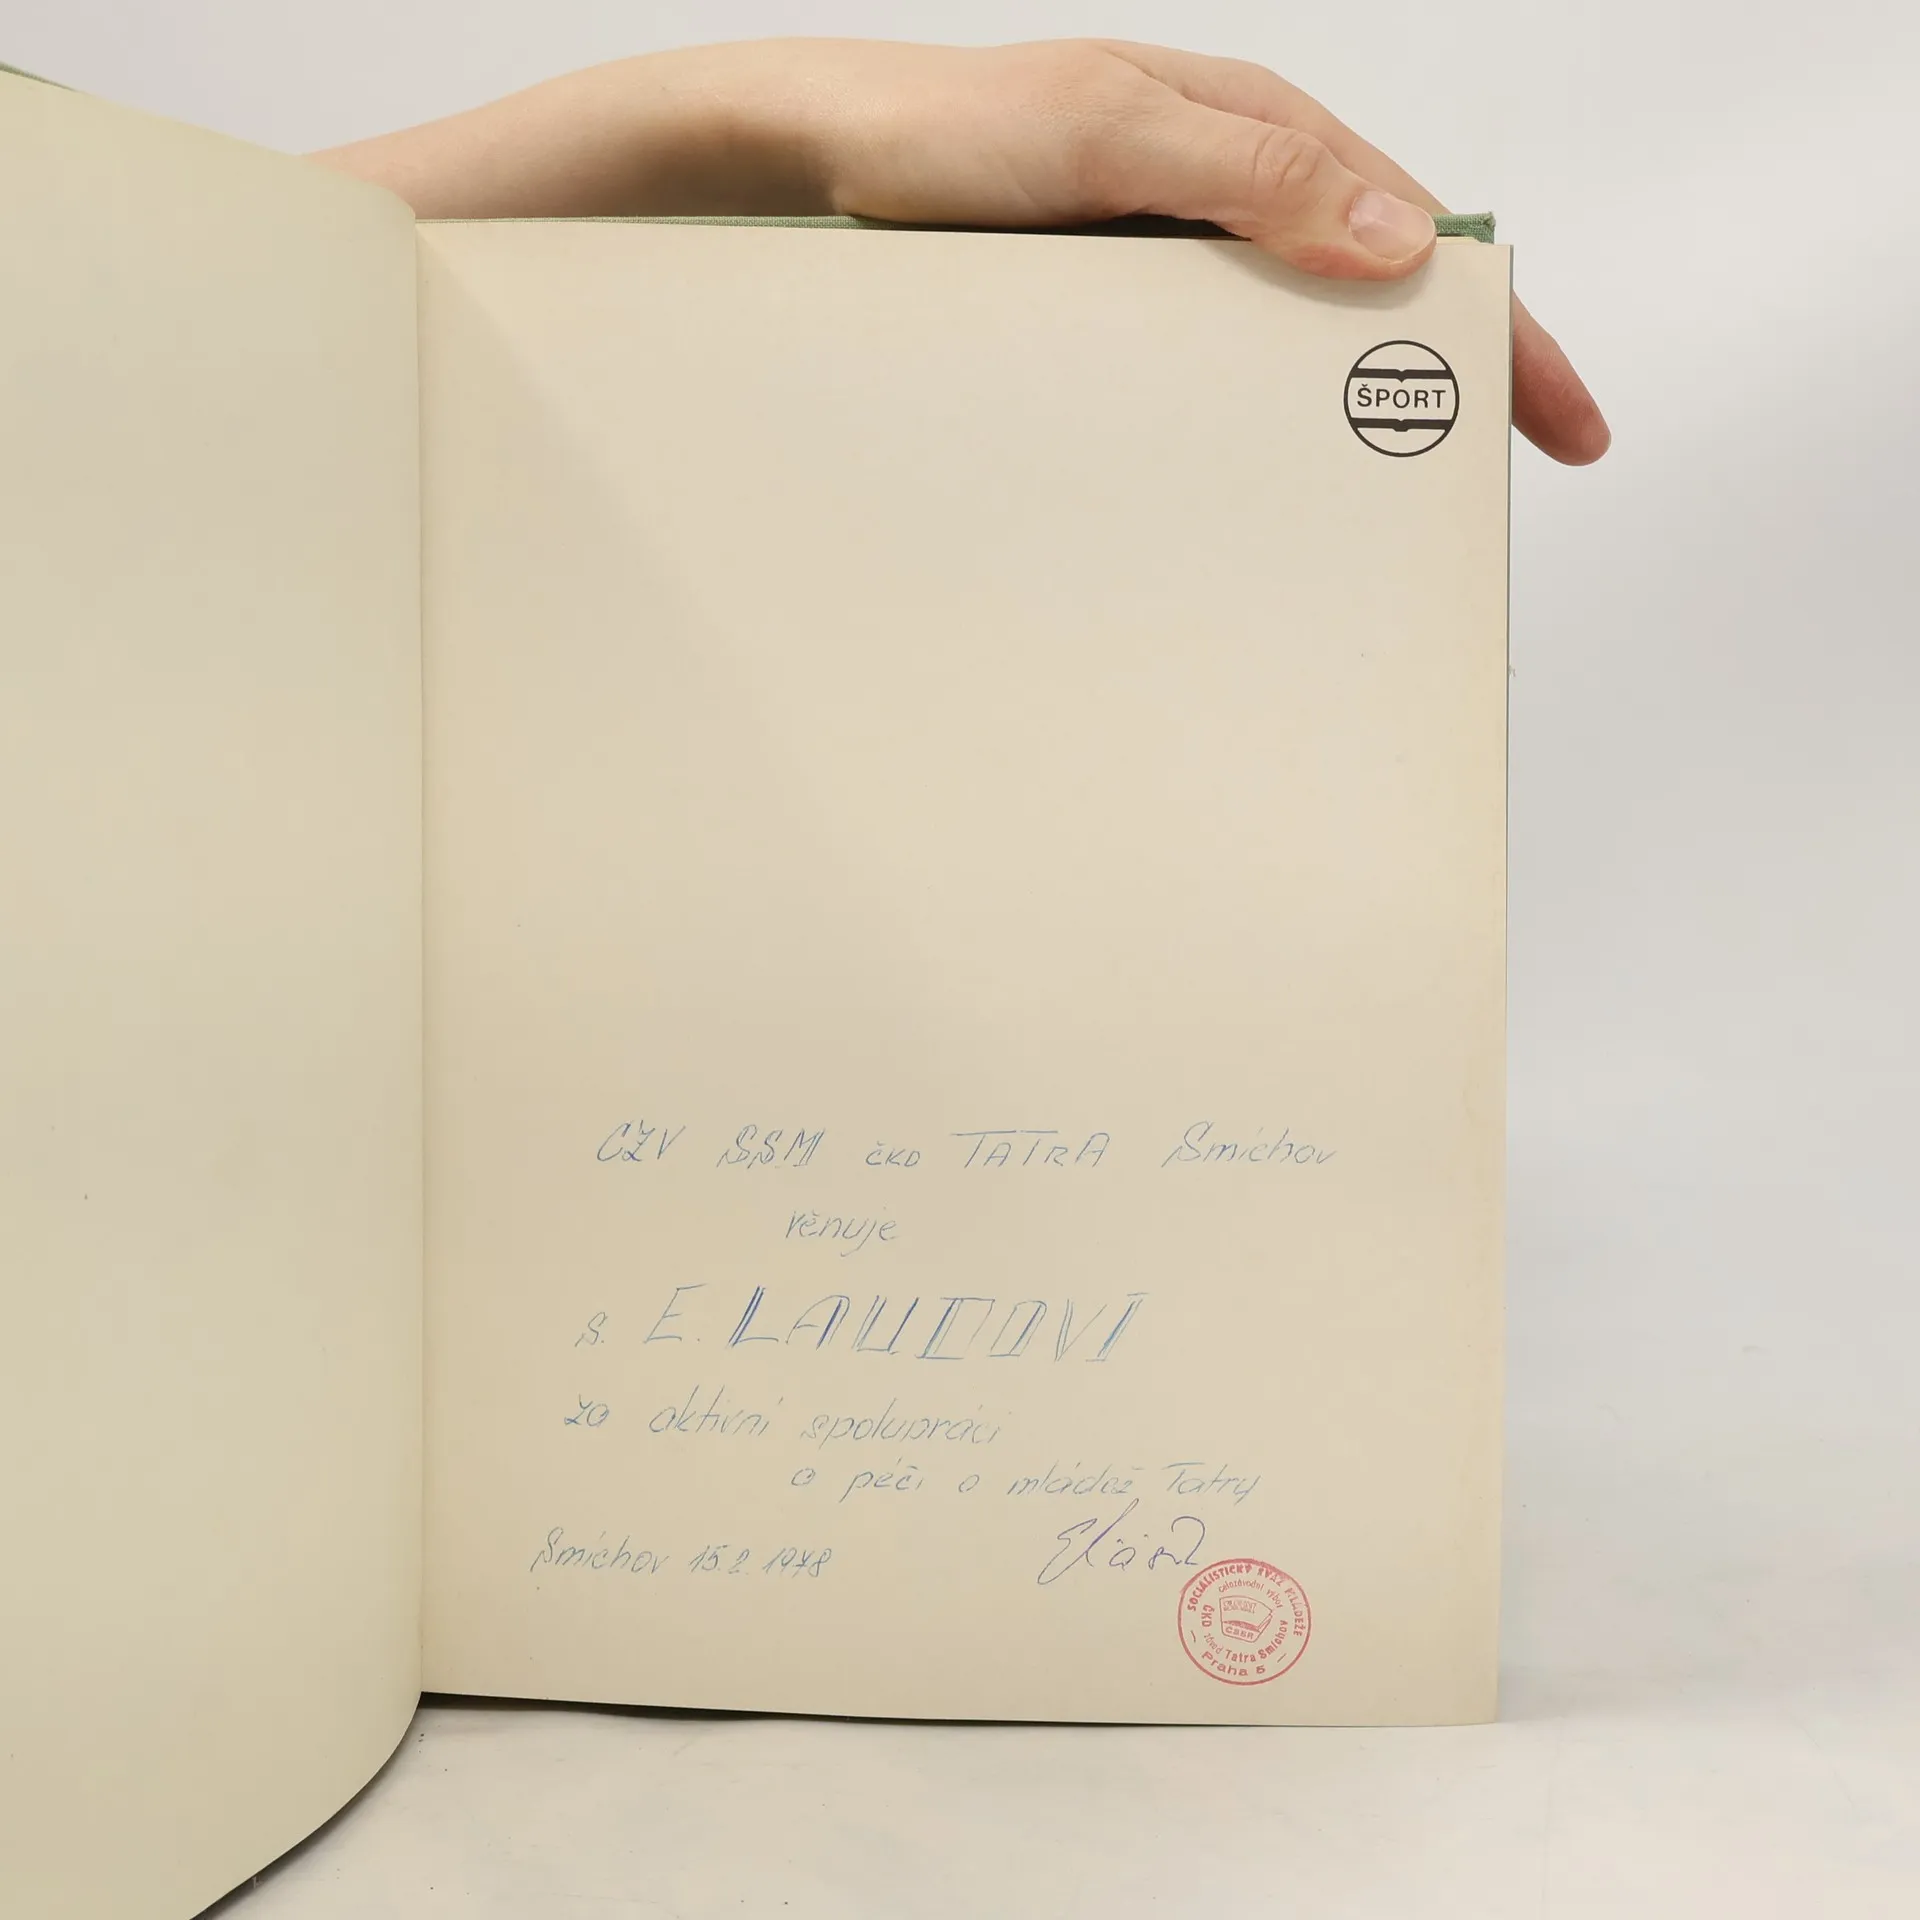 ŠPORT
CZV SSM ČKD TATRA Smíchov
věnuje
s. E. LAUDOVI
za aktivní spolupráci
o péči o mládež Tatry
Smíchov 15.2.1978
SOCIALISTICKÝ SVAZ MLÁDEŽE
celozávodní výbor
SSM
ČSSR
ČKD závod Tatra Smíchov
Praha 5